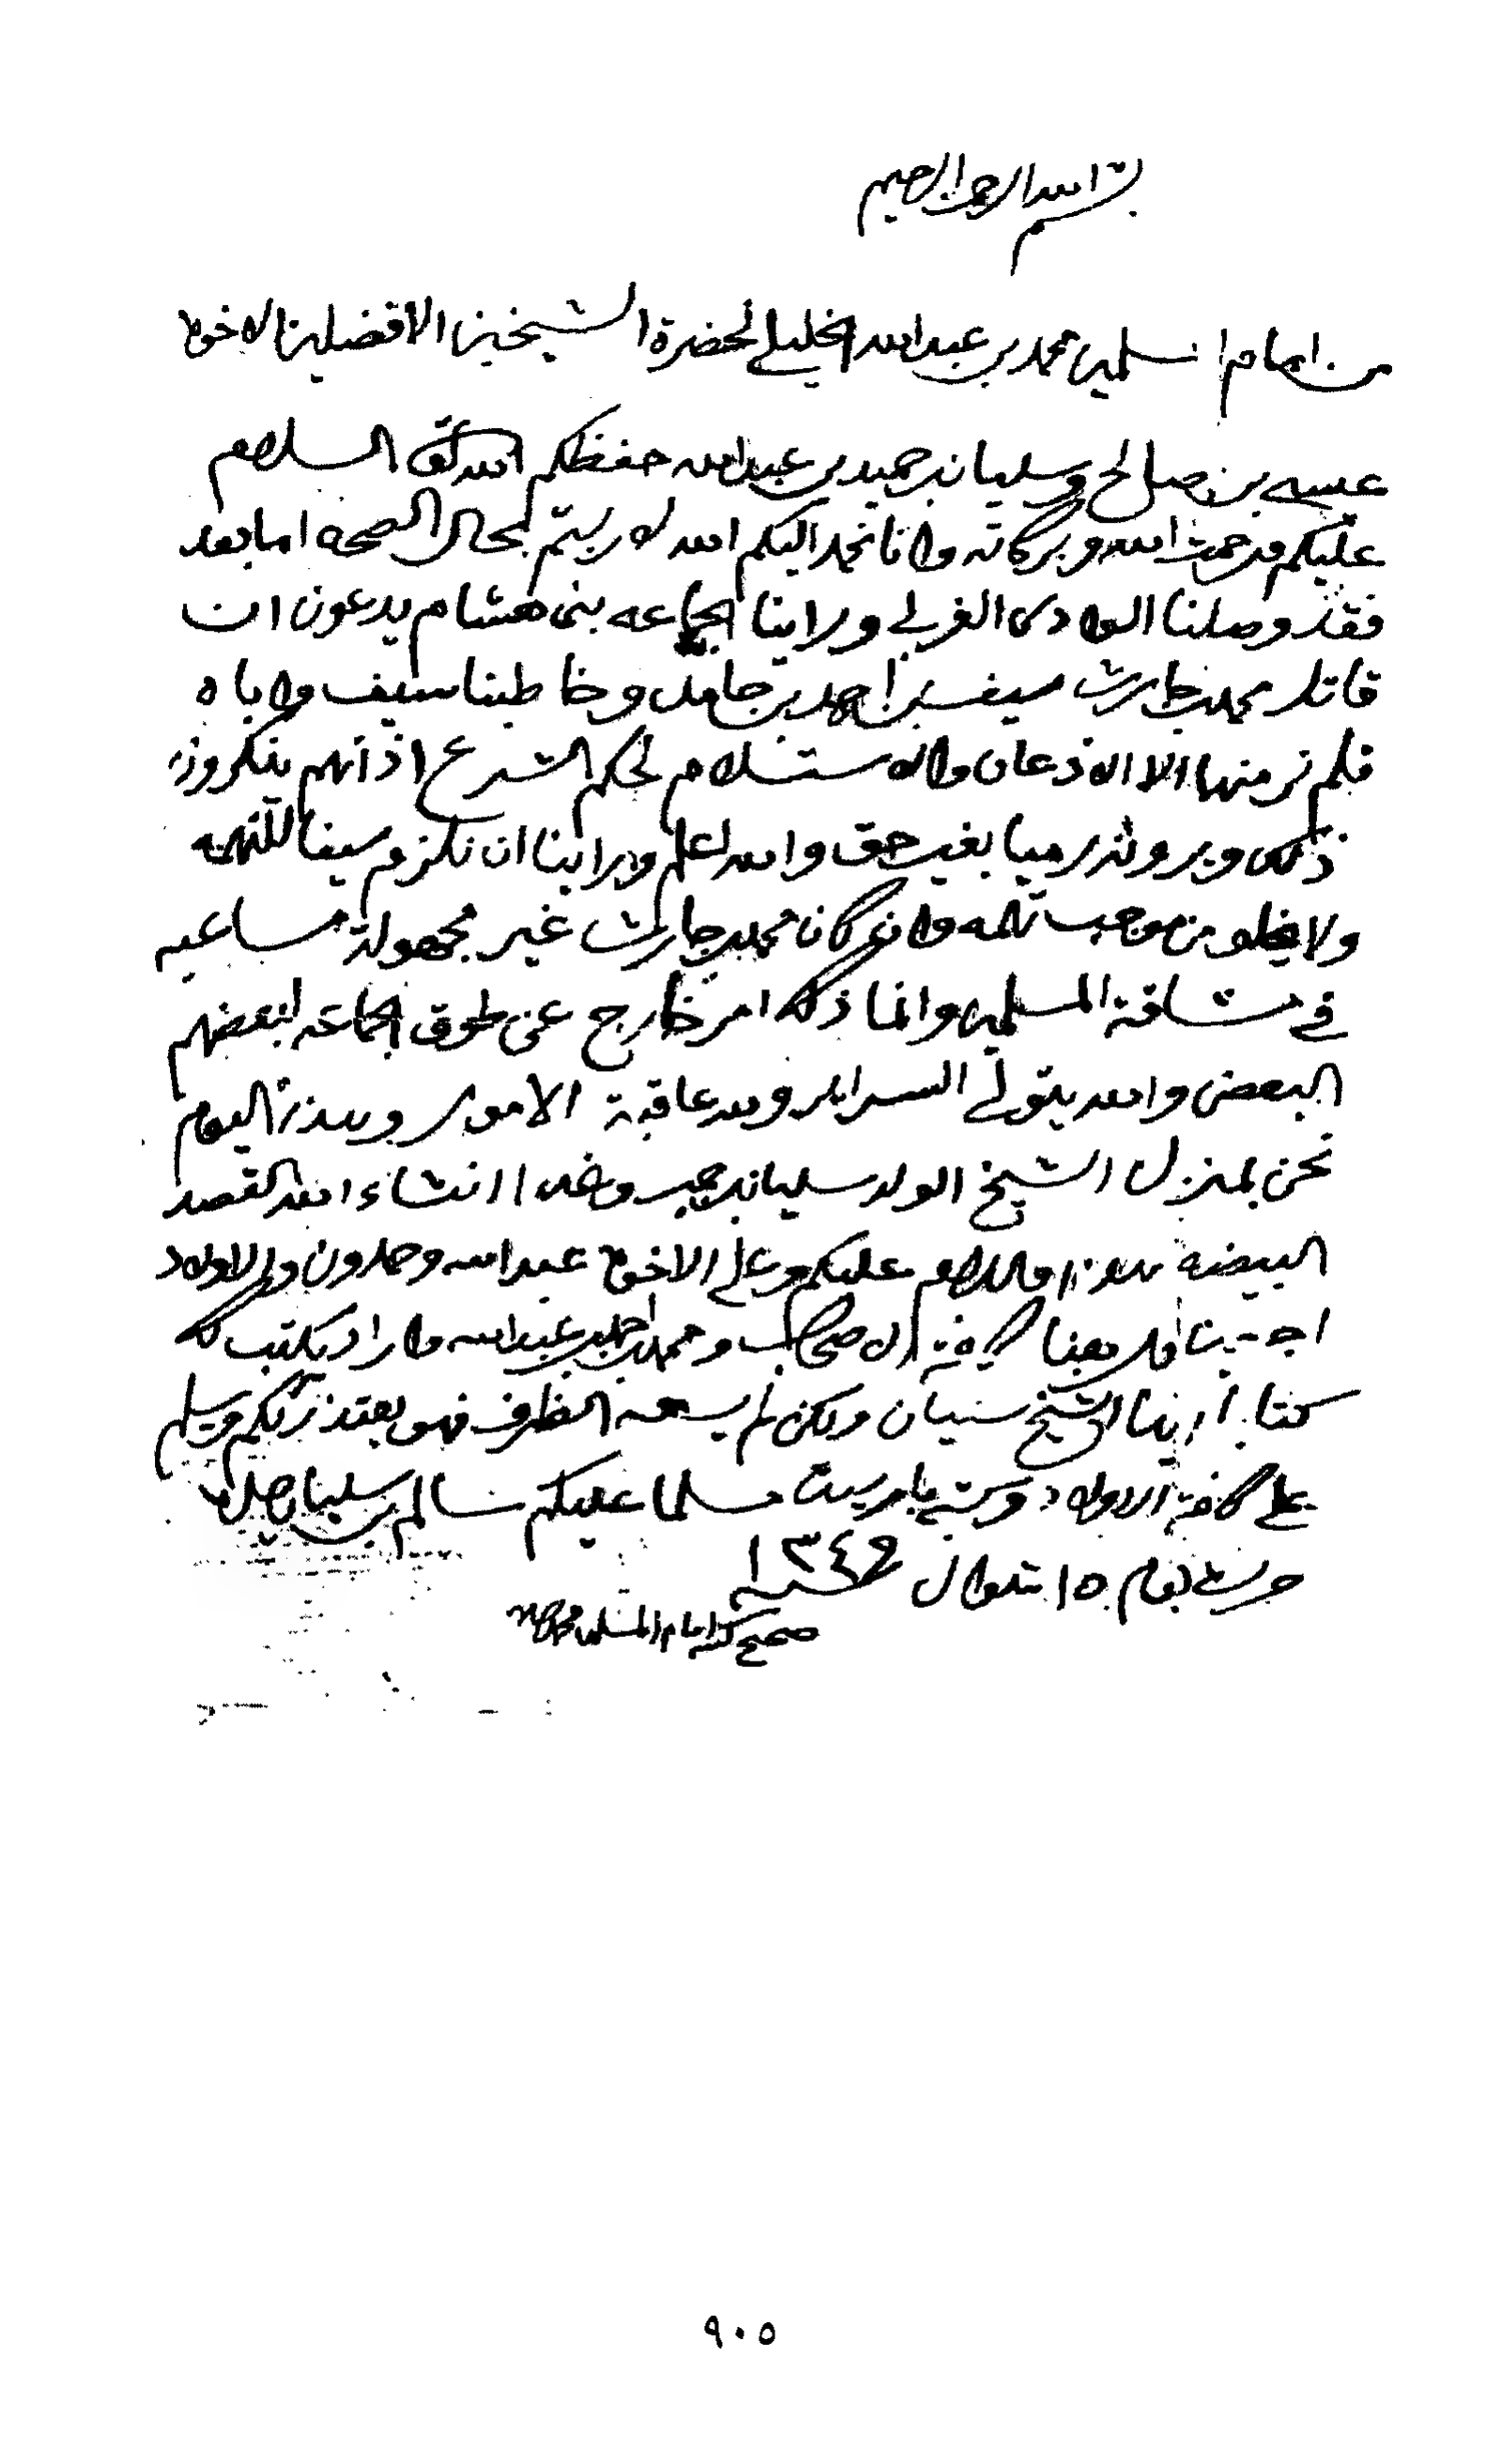 بسم الله الرحمن الرحيم
من امام المسلمين محمد بن عبدالله الخليلي لحضرة الشيخين الافضلين الاخوين
عيسى بن صالح وسليمان بن حمير بن عبدالله حفظكم الله تعالى السلام
عليكم ورحمة الله وبركاته وانا نحمد اليكم الله لا ريتم بحال الصحه اما بعد
فقد وصلنا الوادي الغربي وراينا الجماعه بنى هشام يدعون ان
قاتل محمد بن حارث سيف بن احمد بن حامد وخاطبنا سيف واباه
فلم نر منهما الا الاذعان والاستسلام لحكم الشرع اذ انهم ينكرون
ذلك ويرونه رميا بغير حق والله اعلم وراينا ان نلزم سيفا للتهمه
ولا يخلو من موجب تهمه وان كان محمد بن حارث غير مجهولة مساعيه
في مشاقة المسلمين وانما ذلك امر خارج عن طوق الجماعه لبعضهم
البعض والله يتولى السراير ولله عاقبة الامور اليوم
نحن بمنزل الشيخ الولد سليمان بن حمير وغدا انشاء الله القصد
البيضه والسلام عليكم وعلى الاخوان عبدالله وحمدون والاولاد
معنا كافة الاصحاب ومحمد بن احمد بن عبدالله واراد يكتب لك
كتابا الشيخ ولكن لم يسعه الظرف فهو يعتذر لكم ويسلم
على كافة الاولاد وكتبه بامره مسلما عليكم سالم بن سليمان
حرر يوم ١٥ شوال سنة ١٣٤٩
صحيح كتبه امام المسلمين محمد
٩٠٥